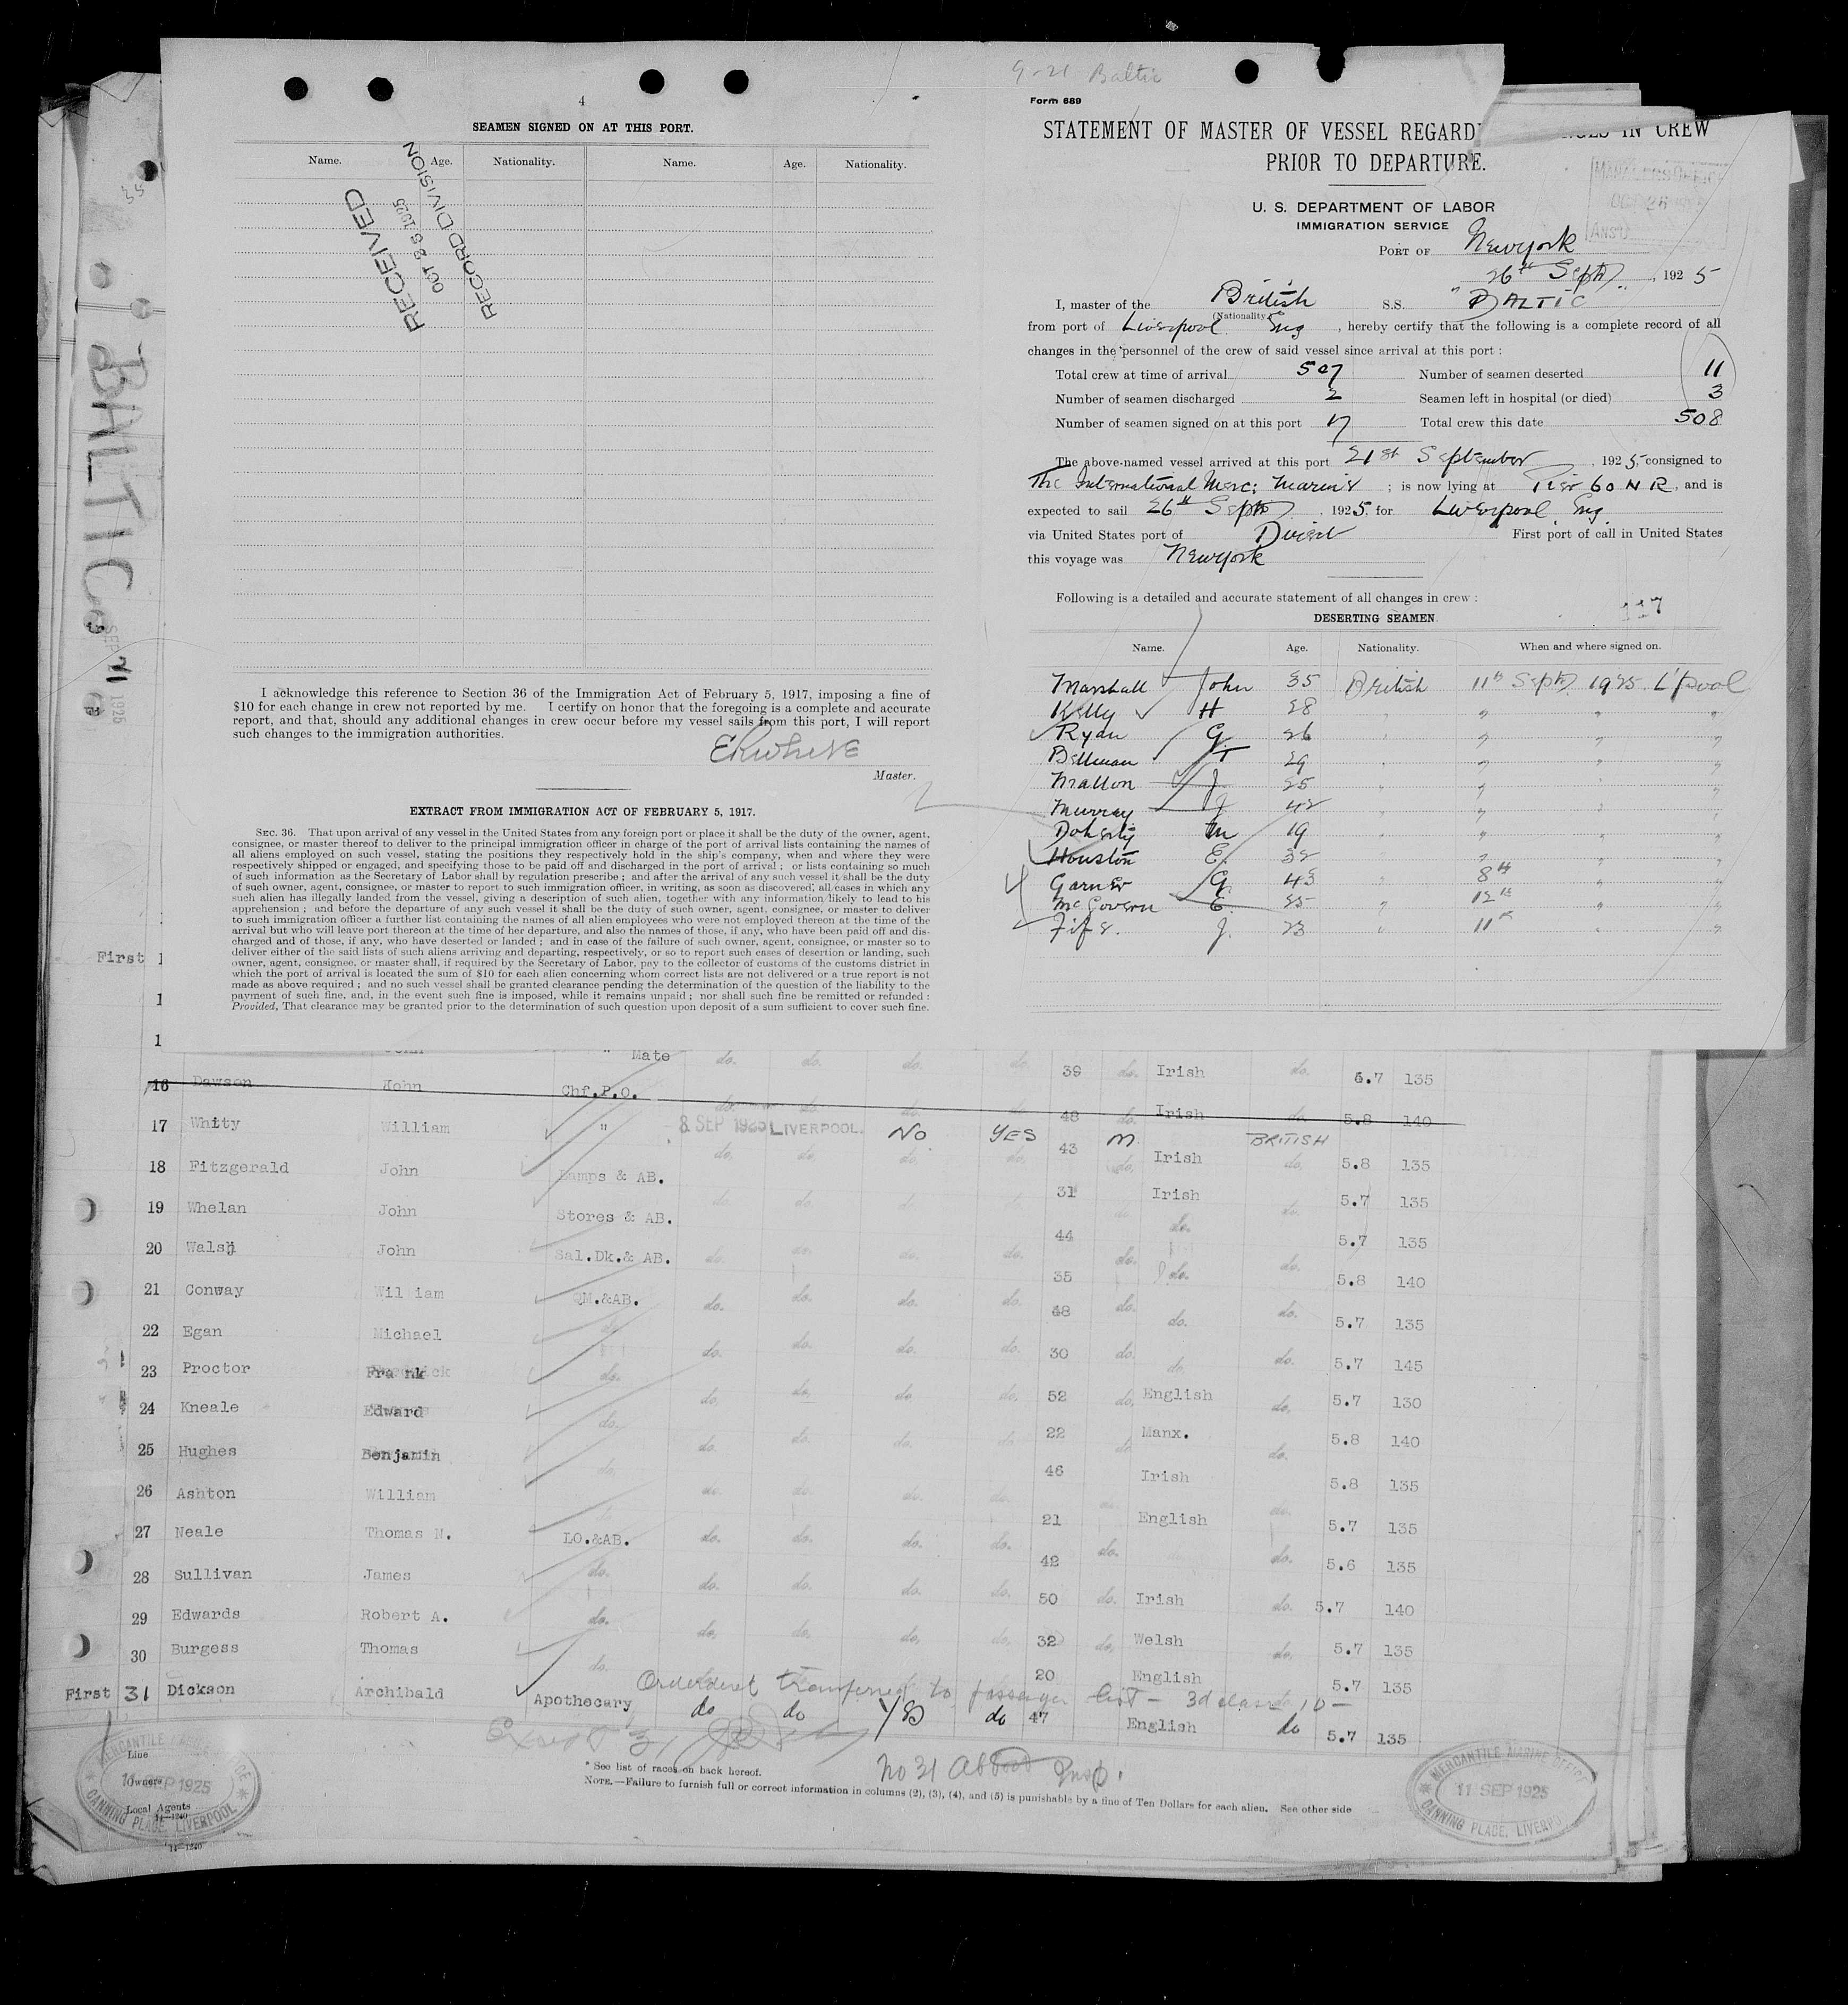 4
SEAMEN SIGNED ON AT THIS PORT.
Name. Age. Nationality. Name. Age. Nationality.
RECEIVED
OCT 28 1925
RECORD DIVISION
I acknowledge this reference to Section 36 of the Immigration Act of February 5, 1917, imposing a fine of
$10 for each change in crew not reported by me. I certify on honor that the foregoing is a complete and accurate
report, and that, should any additional changes in crew occur before my vessel sails from this port, I will report
such changes to the immigration authorities.
ERWhite
Master.
EXTRACT FROM IMMIGRATION ACT OF FEBRUARY 5, 1917.
SEC. 36. That upon arrival of any vessel in the United States from any foreign port or place it shall be the duty of the owner, agent,
consignee, or master thereof to deliver to the principal immigration officer in charge of the port of arrival lists containing the names of
all aliens employed on such vessel, stating the positions they respectively hold in the ship's company, when and where they were
respectively shipped or engaged, and specifying those to be paid off and discharged in the port of arrival ; or lists containing so much
of such information as the Secretary of Labor shall by regulation prescribe ; and after the arrival of any such vessel it shall be the duty
of such owner, agent, consignee, or master to report to such immigration officer, in writing, as soon as discovered, all cases in which any
such alien has illegally landed from the vessel, giving a description of such alien, together with any information likely to lead to his
apprehension ; and before the departure of any such vessel it shall be the duty of such owner, agent, consignee, or master to deliver
to such immigration officer a further list containing the names of all alien employees who were not employed thereon at the time of the
arrival but who will leave port thereon at the time of her departure, and also the names of those, if any, who have been paid off and dis-
charged and of those, if any, who have deserted or landed ; and in case of the failure of such owner, agent, consignee, or master so to
deliver either of the said lists of such aliens arriving and departing, respectively, or so to report such cases of desertion or landing, such
owner, agent, consignee, or master shall, if required by the Secretary of Labor, pay to the collector of customs of the customs district in
which the port of arrival is located the sum of $10 for each alien concerning whom correct lists are not delivered or a true report is not
made as above required ; and no such vessel shall be granted clearance pending the determination of the question of the liability to the
payment of such fine, and, in the event such fine is imposed, while it remains unpaid ; nor shall such fine be remitted or refunded :
Provided, That clearance may be granted prior to the determination of such question upon deposit of a sum sufficient to cover such fine.
9-21 Baltic
Form 689
STATEMENT OF MASTER OF VESSEL REGARD IN CREW
PRIOR TO DEPARTURE.
U. S. DEPARTMENT OF LABOR
IMMIGRATION SERVICE
PORT OF Newyork
26th Septr., 1925
I, master of the British S.S. "BALTIC
(Nationality)
from port of Liverpool Eng, hereby certify that the following is a complete record of all
changes in the personnel of the crew of said vessel since arrival at this port :
Total crew at time of arrival 507 Number of seamen deserted 11
Number of seamen discharged 2 Seamen left in hospital (or died) 3
Number of seamen signed on at this port 17 Total crew this date 508
The above-named vessel arrived at this port 21st September, 1925, consigned to
The International Merc: Marine ; is now lying at Pier 60 N R, and is
expected to sail 26th Septr, 1925, for Liverpool, Eng.
via United States port of Direct First port of call in United States
this voyage was Newyork
Following is a detailed and accurate statement of all changes in crew :
117
DESERTING SEAMEN
Name. Age. Nationality. When and where signed on.
Marshall John 35 British 11th Septr 1925. L'pool
Kelly H 28 " " " "
Ryan G. 26 " " " "
Bellman T 29 " " " "
Mallon J 25 " " " "
Murray J 42 " " " "
Doherty M 19 " " " "
Houston E. 32 " " " "
Garner G. 43 " 8th " "
McGovern E. 25 " 12th " "
Fife. J. 23 " 11th " "
BALTIC
SEP 21 1925
First 1
1
1
Mate do. do. do. do. 39 do. Irish do. 5.7 135
16 Dawson John Chf.P.O. do. do. do. 48 do. Irish do 5.8 140
17 Whity William " 8 SEP 1925 LIVERPOOL. NO YES 43 M Irish BRITISH 5.8 135
18 Fitzgerald John Lamps & AB. do. do. do. do. 31 do. Irish do. 5.7 135
19 Whelan John Stores & AB. do do. do do. 44 do. do. do. 5.7 135
20 Walsh John Sal.Dk.& AB. do. do. do. do. 35 do. do. do. 5.8 140
21 Conway Wil iam QM.&AB. do. do. do. do. 48 do. do. do. 5.7 135
22 Egan Michael do. do. do. do. do. 30 do. do do. 5.7 145
23 Proctor Fra nk do. do. do. do do. 52 do. English do. 5.7 130
24 Kneale Edward do. do. do. do. do 22 do Manx. do. 5.8 140
25 Hughes Benjamin do. do. do. do. do. 46 Irish 5.8 135
26 Ashton William 21 English 5.7 135
27 Neale Thomas N. LO.&AB. do. do. do. do. 42 do. do. 5.6 135
28 Sullivan James do. do. do. do. do. 50 do. Irish do. 5.7 140
29 Edwards Robert A. do. do. do. do. do. 32 do. Welsh do. 5.7 135
30 Burgess Thomas do. 20 English 5.7 135
Ordered transferred to passenger list - 3d class 10 -
First 31 Dickson Archibald Apothecary do do Yes do 47 English do 5.7 135
Except 31
No 31 Aboard Insp.
Line
Owners
Local Agents
14-1240
14-1240
MERCANTILE MARINE OFFICE
11 SEP 1925
CANNING PLACE, LIVERPOOL
* See list of races on back hereof.
NOTE.—Failure to furnish full or correct information in columns (2), (3), (4), and (5) is punishable by a fine of Ten Dollars for each alien. See other side
MERCANTILE MARINE OFFICE
11 SEP 1925
CANNING PLACE, LIVERPO